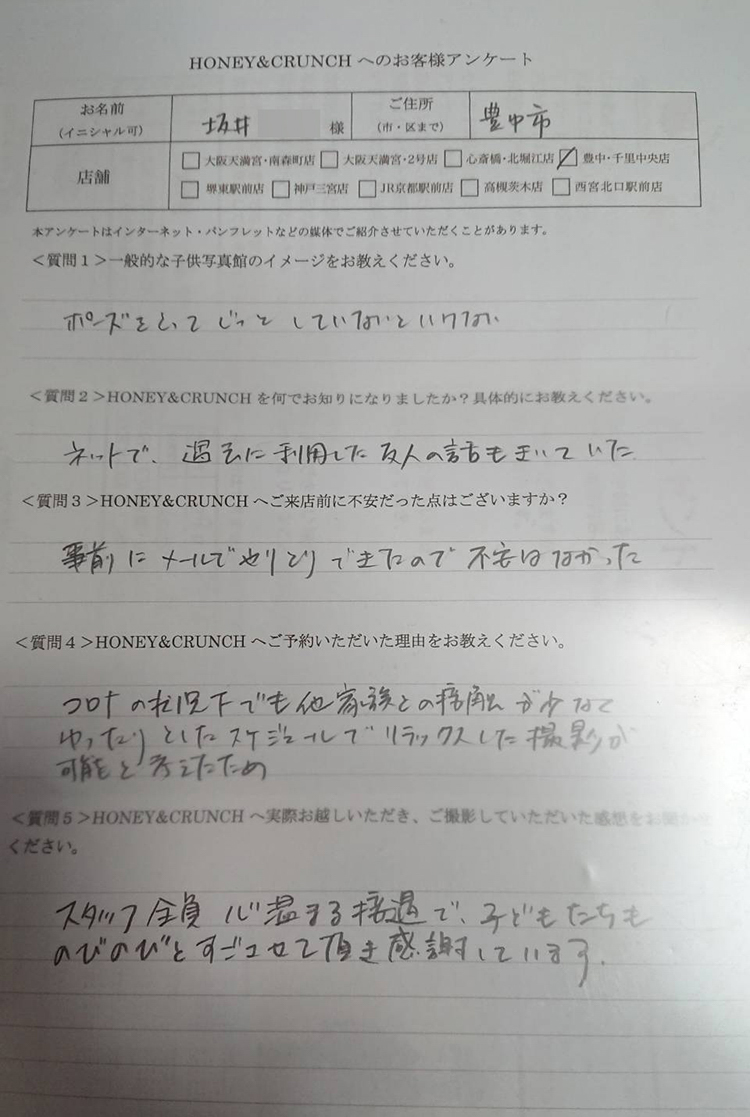 HONEY&CRUNCH へのお客様アンケート
お名前 (イニシャル可) 坂井 様 ご住所 (市・区まで) 豊中市
店舗 □大阪天満宮・南森町店 □大阪天満宮・2号店 □心斎橋・北堀江店 ☑豊中・千里中央店
□堺東駅前店 □神戸三宮店 □JR京都駅前店 □高槻茨木店 □西宮北口駅前店
本アンケートはインターネット・パンフレットなどの媒体でご紹介させていただくことがあります。
<質問1>一般的な子供写真館のイメージをお教えください。
ポーズをとって じっと していないといけない
<質問2>HONEY&CRUNCHを何でお知りになりましたか?具体的にお教えください。
ネットで、過去に利用した友人の話もきいていた
<質問3>HONEY&CRUNCHへご来店前に不安だった点はございますか?
事前に メールでやりとり できたので 不安はなかった
<質問4>HONEY&CRUNCHへご予約いただいた理由をお教えください。
コロナの状況下でも他家族との接触が少なく
ゆったりとしたスケジュールでリラックスした撮影が
可能と考えたため
<質問5>HONEY&CRUNCHへ実際お越しいただき、ご撮影していただいた感想をお聞かせ
ください。
スタッフ全員 心温まる接遇で、子どもたちも
のびのびとすごさせて頂き感謝しています。